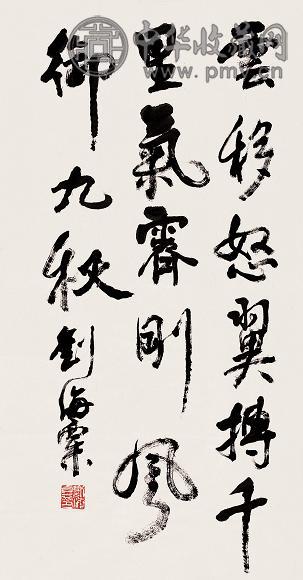 雲移怒翼搏千
里氣霽剛風
御九秋
劉海粟
中华收藏网
www.pmy.cn